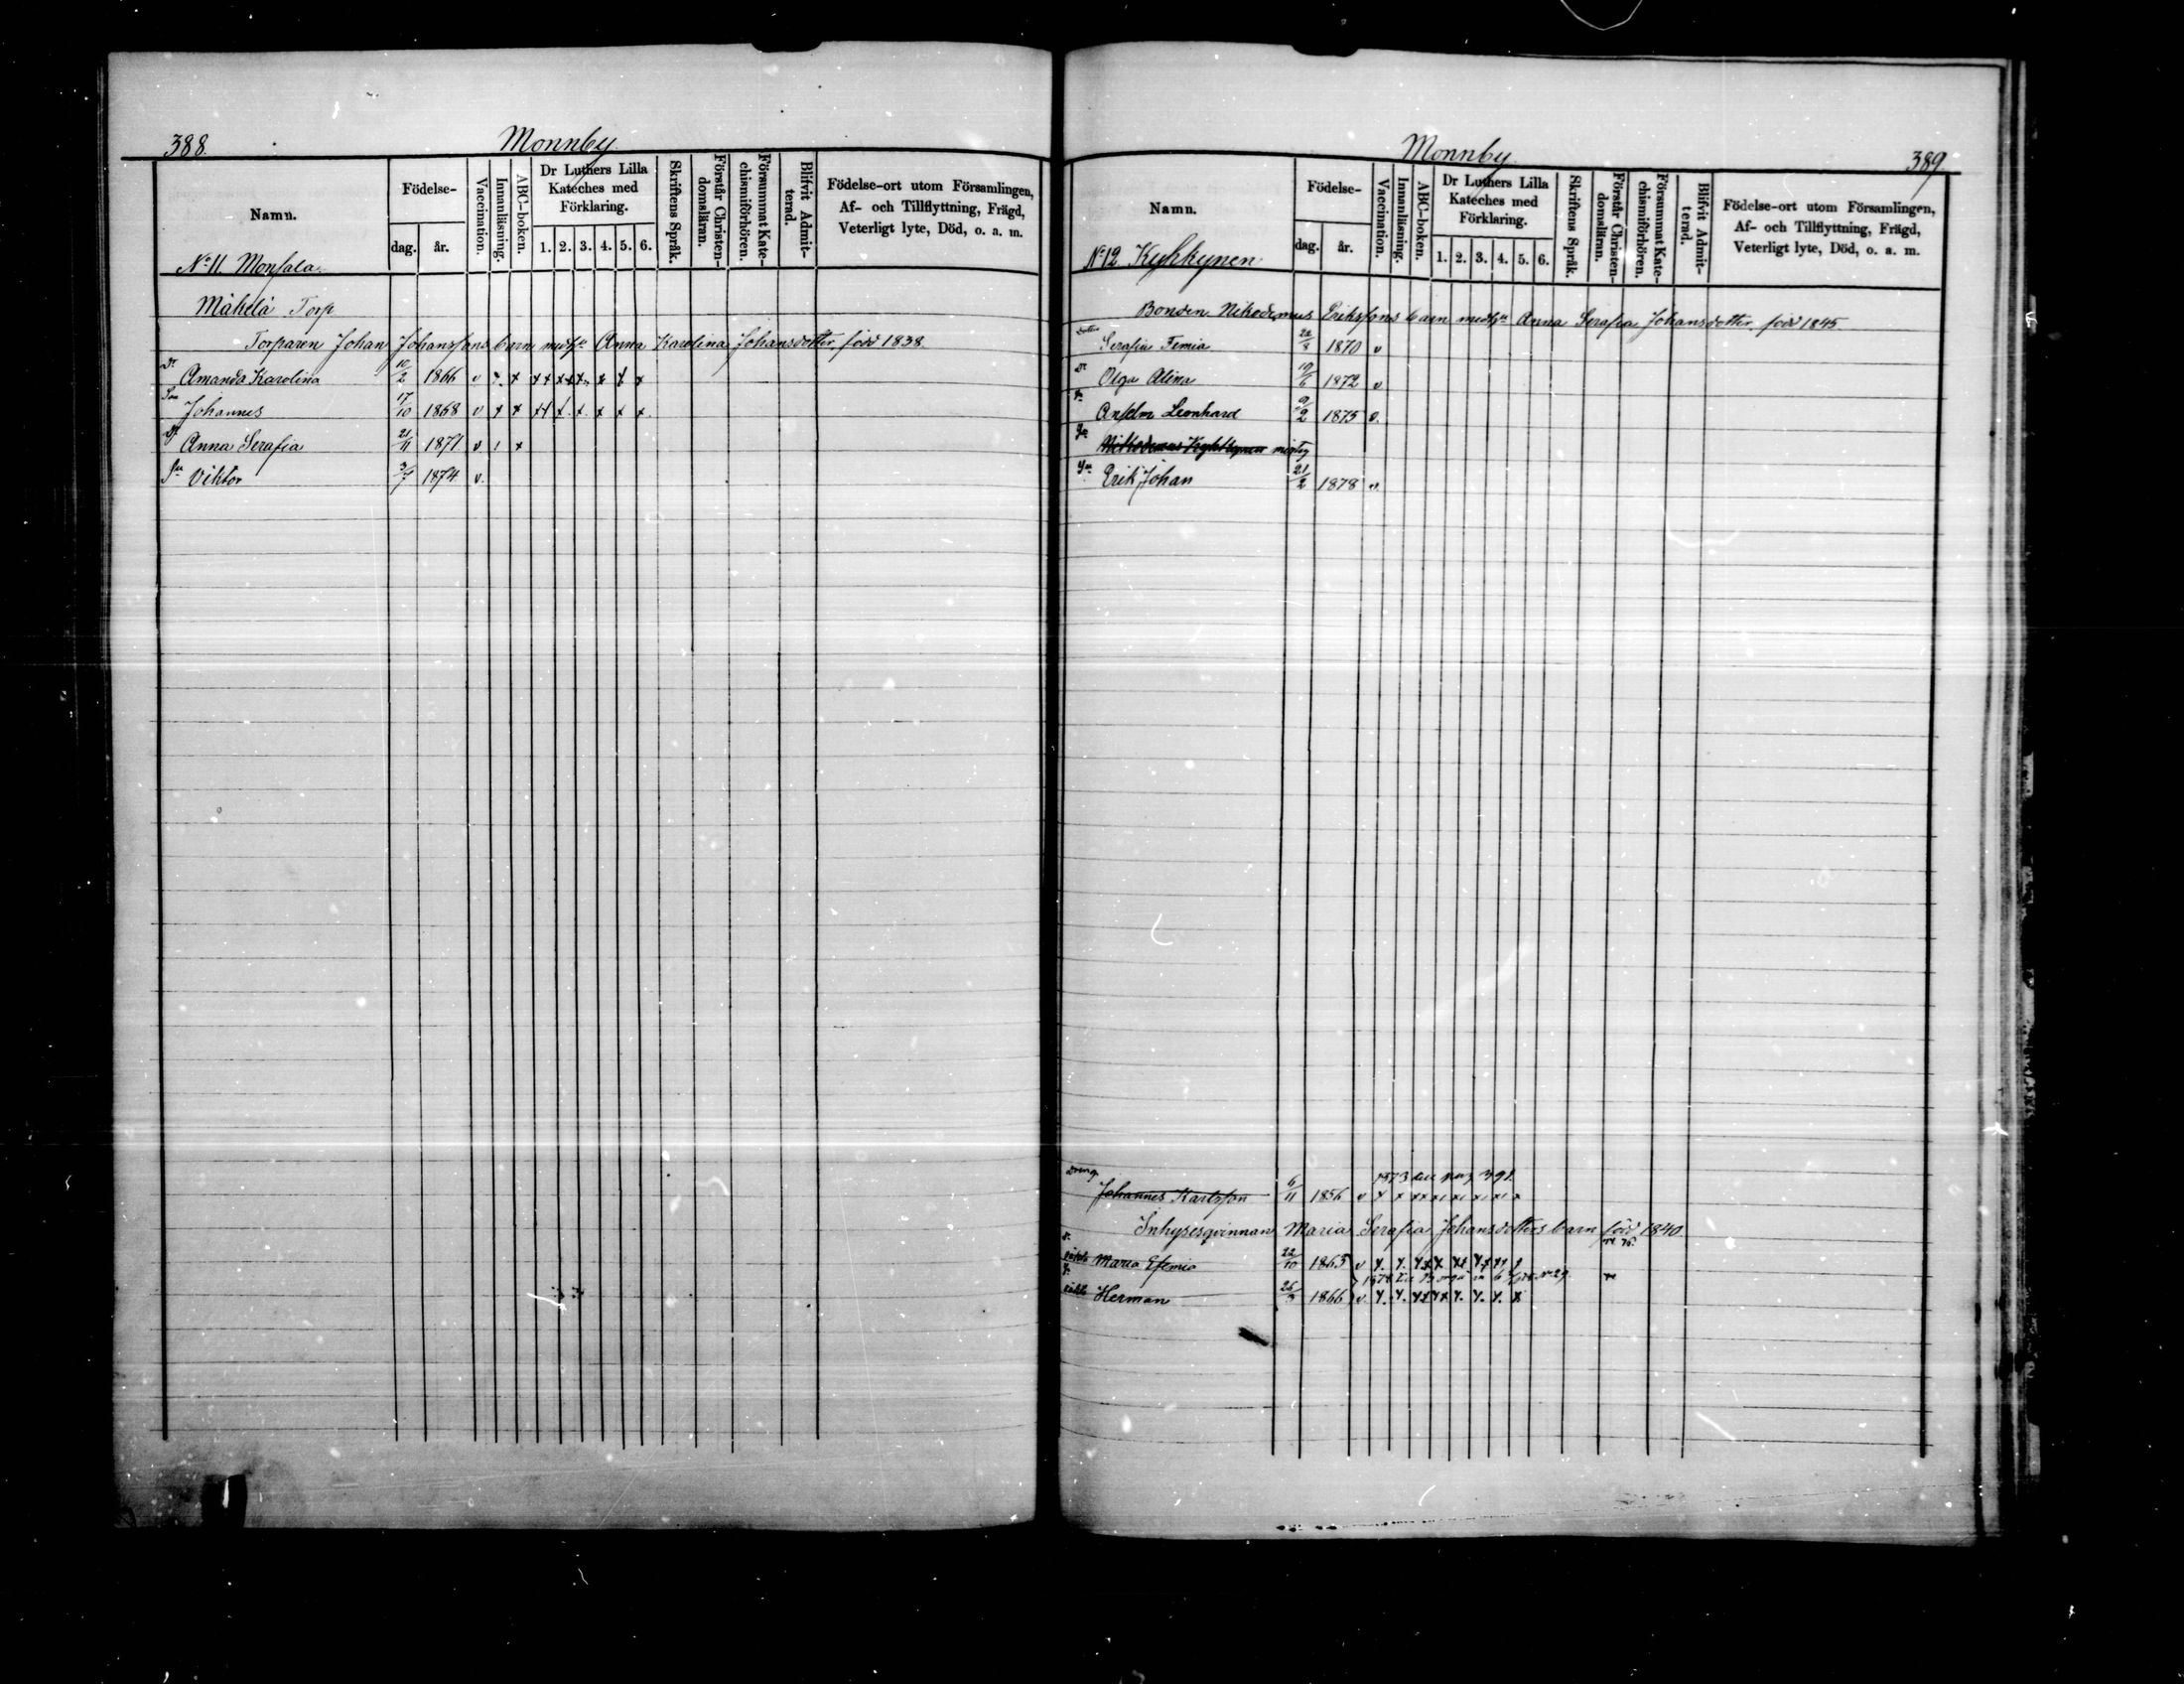 388.
Monnby
Namn.
Födelse-
dag.
år.
Vaccination.
Innanläsning.
ABC-boken.
Dr Luthers Lilla
Kateches med
Förklaring.
1. 2. 3. 4. 5. 6.
Skriftens Språk.
Förstår Christen-
domsläran.
Försummat Kate-
chismiförhören.
Blifvit Admit-
terad.
Födelse-ort utom Församlingen,
Af- och Tillflyttning, Frägd,
Veterligt lyte, Död, o. a. m.
No 11 Monsala
Mäkelä Torp
Torparen Johan Johanssons barn med hu Anna Karolina Johansdotter, född 1838
Dr Amanda Karolina 10/2 1866 v x x x x x x x x x x
Son Johannes 17/10 1868 v x x x x x x x x x
Dr Anna Serafia 21/11 1871 v 1 x
Sn Viktor 3/7 1874 v.
Monnby
389.
Namn.
Födelse-
dag.
år.
Vaccination.
Innanläsning.
ABC-boken.
Dr Luthers Lilla
Kateches med
Förklaring.
1. 2. 3. 4. 5. 6.
Skriftens Språk.
Förstår Christen-
domsläran.
Försummat Kate-
chismiförhören.
Blifvit Admit-
terad.
Födelse-ort utom Församlingen,
Af- och Tillflyttning, Frägd,
Veterligt lyte, Död, o. a. m.
No 12 Kykkynen
Bonden Nikodemus Erikssons barn med hu Anna Serafia Johansdotter, född 1845
Serafia Femia 22/8 1870 v
Dr Olga Alina 19/6 1872 v
Sn Anselm Leonhard 9/2 1875 v.
Nikodemus Kykkynen
Sn Erik Johan 21/2 1878 v.
Dreng. 1873 391
Johannes Karlsson 6/11 1856 v x x xx x x x x x
Inhysesqvinnan Maria Serafia Johansdotters barn född 1840
Maria Efemia 22/10 1863 v
Herman 26/3 1866 v.